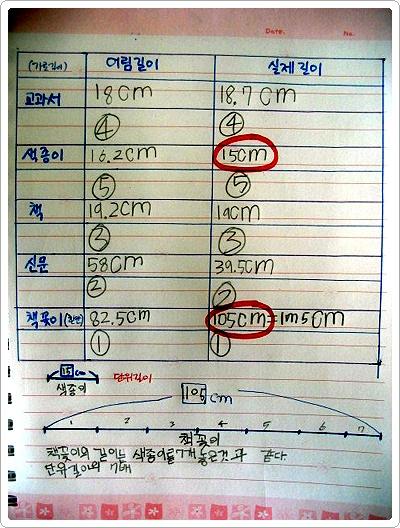 Date. No.
(가로길이) 어림길이 실제길이
교과서 18cm 18.7cm
④ ④
색종이 16.2cm 15cm
⑤ ⑤
책 19.2cm 19cm
③ ③
신문 58cm 39.5cm
② ②
책꽂이 82.5cm 105cm=1m5cm
① ①
15cm 단위길이
색종이
105cm
1 2 3 4 5 6 7
책꽂이
책꽂이의 길이는 색종이를 7개 놓은것과 같다
단위길이의 7배